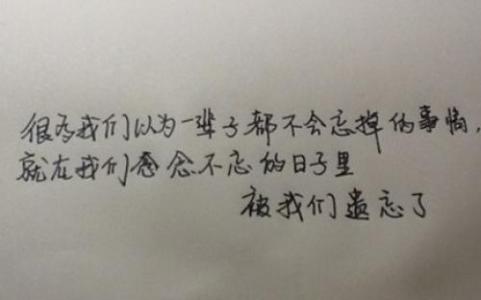 很多我们以为一辈子都不会忘掉的事情，
就在我们念念不忘的日子里
被我们遗忘了